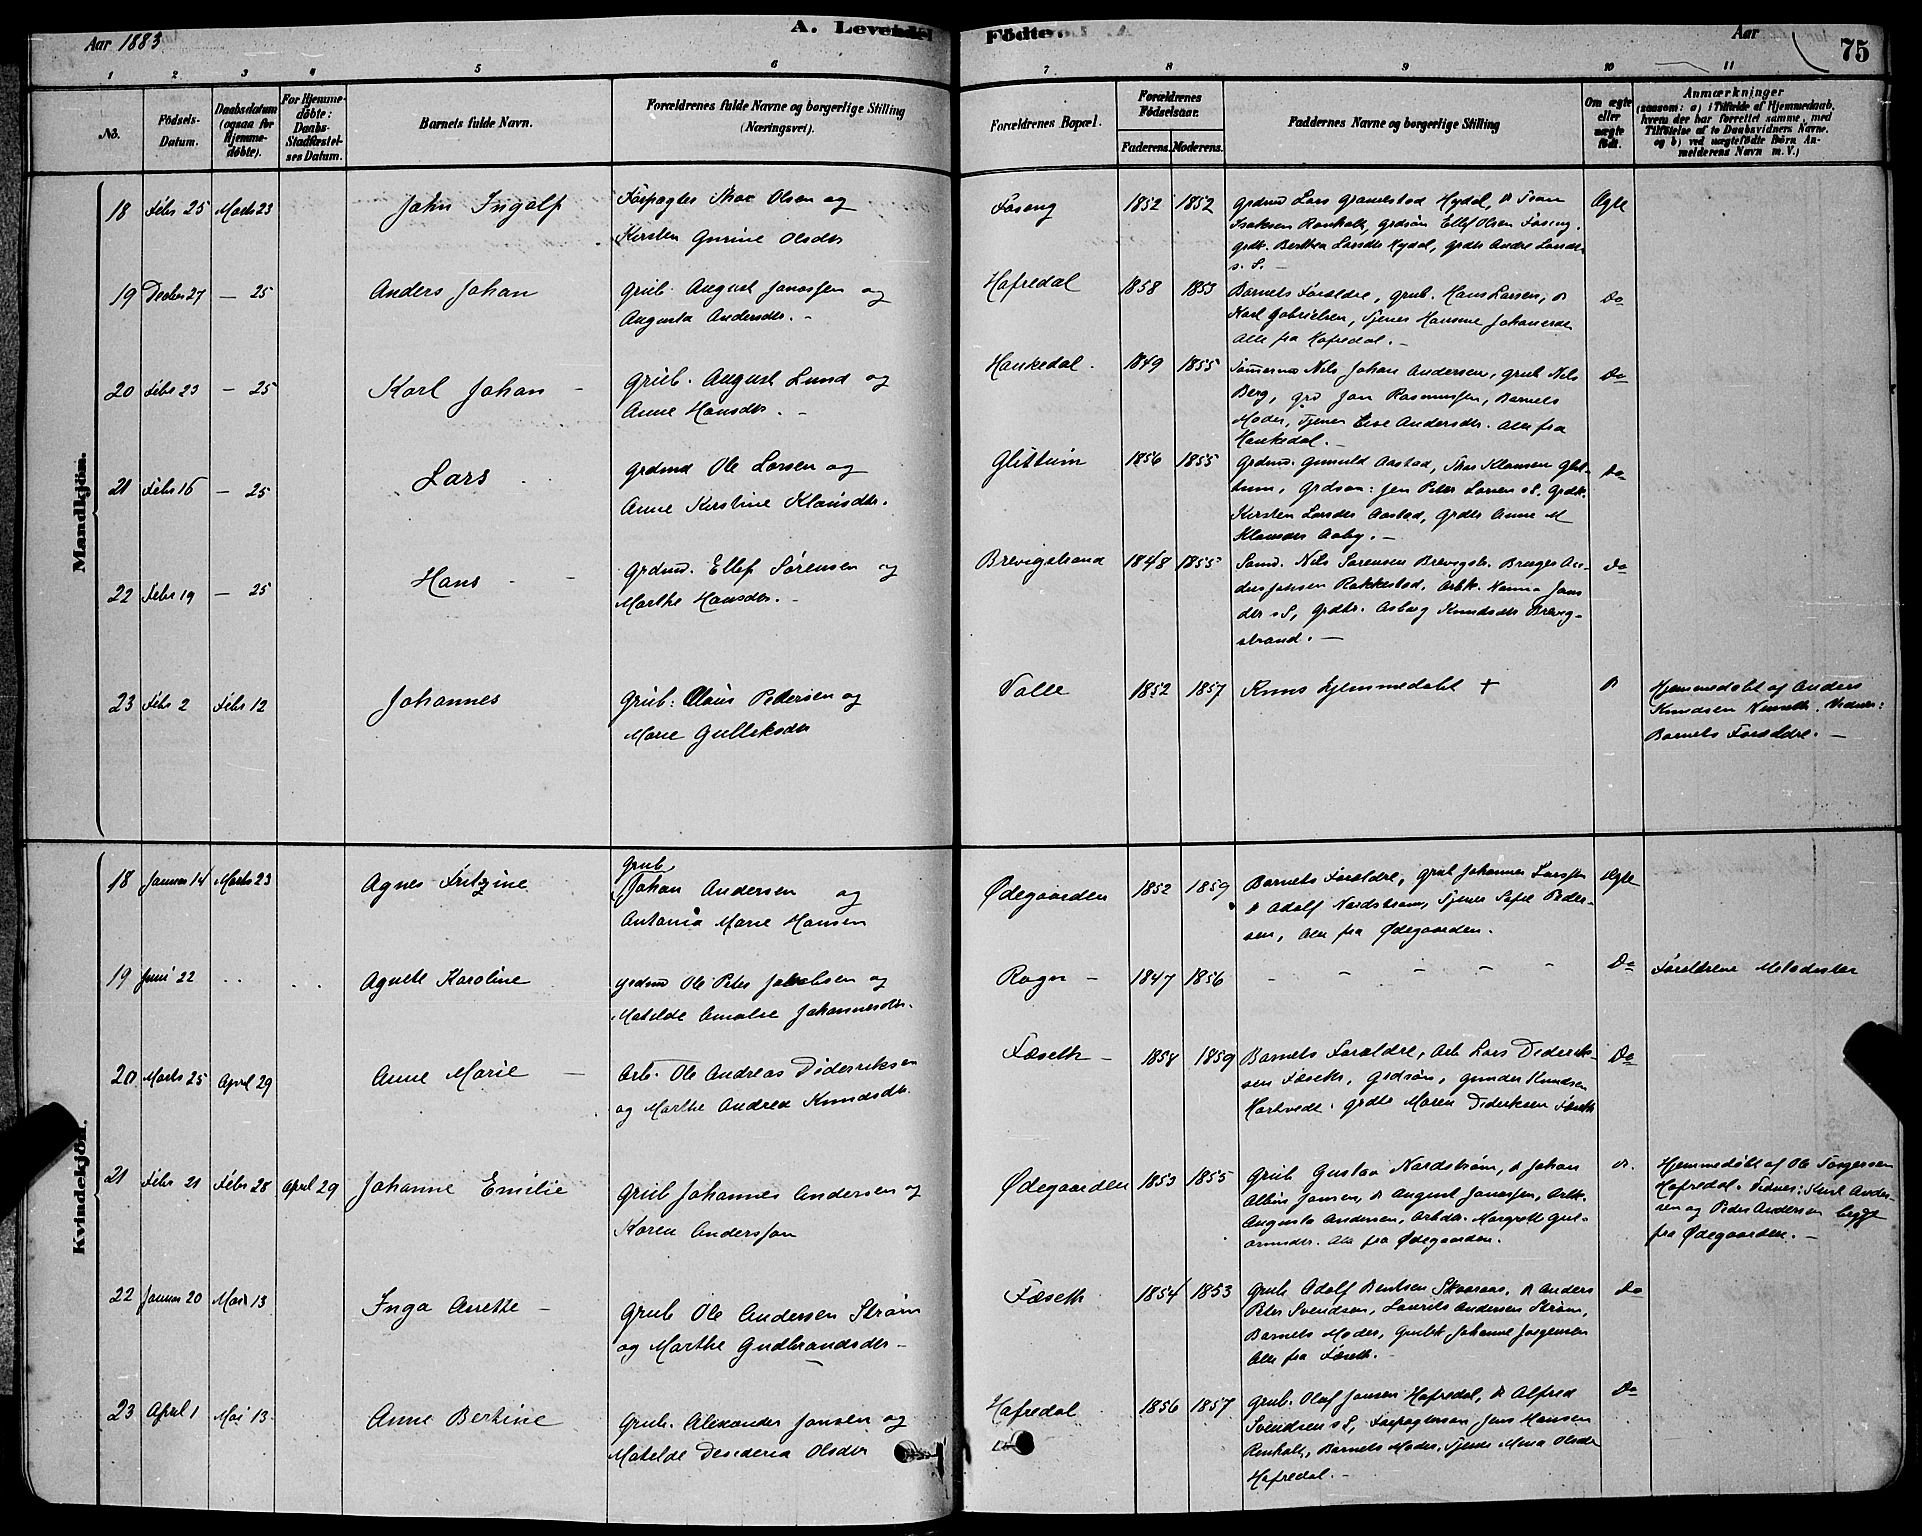 Aar 1883
A. Levende
Födte.
Aar
75
1 2 3 4 5 6 7 8 9 10 11
No.
Födsels-
Datum.
Daabsdatum
(ogsaa for
Hjemme-
döbte).
For Hjemme-
döbte:
Daabs-
Stadfæstel-
ses Datum.
Barnets fulde Navn.
Forældrenes fulde Navne og borgerlige Stilling
(Næringsvei).
Forældrenes Bopæl.
Forældrenes
Födselsaar.
Faderens. Moderens.
Faddernes Navne og borgerlige Stilling
Om ægte
eller
uægte
född.
Anmærkninger
(saasom: a) i Tilfælde af Hjemmedaab,
hvem der har forrettet samme, med
Tilföielse af to Daabsvidners Navne.
og b) ved uægtefödte Börn An-
melderens Navn m. V.)
Mandkjön.
18 Febr 25 Marts 23 John Ingolf
Forpagter Olsen og
Kirsten Gurine Olsdtr
Foseng 1852 1852
Grdmd Lars Hydal,
Isaksen Ronholt, Grdsön Ellef Olsen Foseng,
Grdtr. Berthea Larsdtr Hydal, Grdtr Andre Larsdtr
s. S. —
Ægte
19 Decbr 27 — 25 Anders Johan
Grub. August Janassen og
Augusta Andersdtr. —
Hafredal 1858 1853
Barnets Forældre, Grub. Hans Larsen,
Karl Gabrielsen, Tjener Hansine Johanesdtr
Alle fra Hafredal. —
Do
20 Febr 23 — 25 Karl Johan —
Grub. August Lund og
Anne Hansdtr. —
Haukedal. 1849 1855
Tömmermd Nils Johan Andersen, Grub Nils
Berg, Grd Jan Rasmussen, Barnets
Moder, Tjener Andersdtr. Alle fra
Haukedal. —
Do
21 Febr 16 — 25 Lars
Grdmd Ole Larsen og
Anne Kirstine Klausdtr.
Glittum 1856 1855
Grdmd. Gunuld Aastad, Klausen Glit-
tum, Grdsøn: Jen Peter Larsen s S. Grdk.
Kirsten Larsdtr Aastad, Grdtr Anne M
Klausdtr Aaby. —
Do
22 Febr 19 — 25 Hans —
Grdmd. Ellef Sörensen og
Marthe Hansdtr. —
Brevigstrand 1848 1855
Sömd. Nils Sörensen Brevigstr. Bruger An-
ders Jansen Rakkestad, Arbk. Hanna Jans
dtr s S, Grdtr. Asborg Knudsdtr Brevig-
strand. —
Do
23 Febr 2 Febr 12 Johannes
Grub: Olaus Pedersen og
Marie Gulleksdtr
Valle 1852 1857 Kuns hjemmedøbt +
Hjemmedøbt af Anders
Knudsen Vidner:
Barnets Forældre. —
Kvindekjön.
18 Januar 14 Marts 23 Agnes Fritzine
Grub.
Johan Andersen og
Antonia Marie Hansen
Ødegaarden 1852 1859
Barnets Forældre, Grub Johannes Larssen
Adolf Nordstrøm, Tjener Sofie Peder-
sen, Alle fra Ødegaarden.
Ægte
19 Juni 22 .. .. Agnete Karoline
Grdmd Ole Peter Jakobsen og
Matilde Amalie Johannesdtr.
Rogn — 1847 1856 - - - - -
Do Forældrene Metodister
20 Marts 25 April 29 Anne Marie —
Arb. Ole Andreas Dideriksen
og Marthe Andrea Knudsdtr.
Fæseth — 1858 1859
Barnets Forældre, Arb Lars Diderik-
sen Fæseth, Grdsön, Gunder Knudsen
Hartvedt, Grdtr Maren Dideriksen Fæseth
Do
21 Febr 21 Febr 28 April 29 Johanne Emilie
Grub Johannes Andersen og
Karen Anderssen
Ødegaarden 1853 1855
Grub Gustav Nordstrøm, Johan
Albin Jansen, August Janassen, Arbk.
Augusta Andersen, Arbdtr. Margrethe Gul-
Alle fra Ødegaarden.
Hjemmedøbt af Ole Torgersen
Hafredal. Vidner: Ander-
sen og Peder Andersen begge
fra Ødegaarden. —
22 Januar 20 Mai 13 Inga Anette —
Grub Ole Andersen Strøm
og Marthe Gudbrandsdtr —
Fæseth 1854 1853
Grub Adolf Bentsen Skaaraas, Anders
Peter Svendsen, Laurits Andersen Strøm,
Barnets Moder, Johanne Jørgensen
Alle fra Fæseth. —
Do
23 April 1 Mai 13 Anne Bertine
Grub. Alexander Jansen og
Matilde Desideria Olsdtr
Hafredal 1856 1857
Grub. Olaf Jansen Hafredal, Alfred
Svendsen s S, Forpagtersøn Jens Hansen
Ronholt, Barnets Moder, Tjener Olsdtr
Hafredal. —
Do